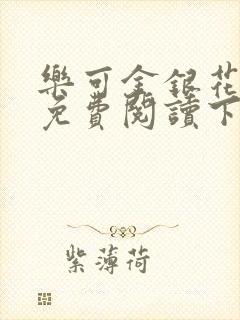 樂可金銀花
免費閱讀下
紫薄荷